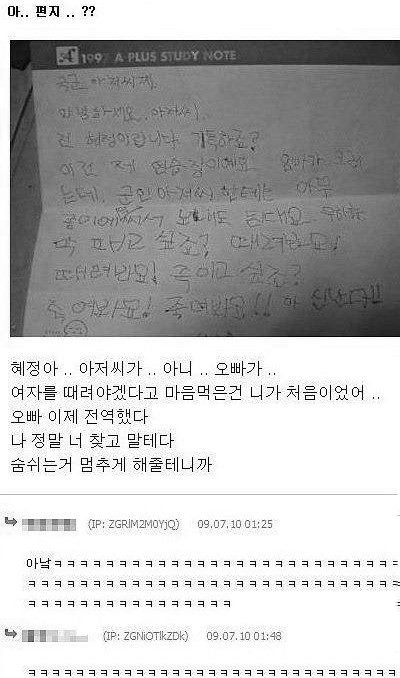 아.. 편지 .. ??
1997 A PLUS STUDY NOTE
국군 아저씨께.
안녕하세요. 아저씨.
전 혜정이랍니다. 기특하죠?
이건 제 연습장이에요. 엄마가 그러
는데, 군인아저씨 한테는 아무
종이에 써서 보내도 된대요. 우하하
막 패고 싶죠? 때려봐요!
때려봐요! 죽이고 싶죠?
죽여봐요! 죽여봐요!! 아 신난다!!
혜정아 .. 아저씨가 .. 아니 .. 오빠가 ..
여자를 때려야겠다고 마음먹은건 니가 처음이었어 ..
오빠 이제 전역했다
나 정말 너 찾고 말테다
숨쉬는거 멈추게 해줄테니까
(IP: ZGRlM2M0YjQ) 09.07.10 01:25
아낰ㅋㅋㅋㅋㅋㅋㅋㅋㅋㅋㅋㅋㅋㅋㅋㅋㅋㅋㅋㅋㅋㅋㅋㅋㅋㅋ
ㅋㅋㅋㅋㅋㅋㅋㅋㅋㅋㅋㅋㅋㅋㅋㅋㅋㅋㅋㅋㅋㅋㅋㅋㅋㅋㅋㅋ
ㅋㅋㅋㅋㅋㅋㅋㅋㅋㅋㅋㅋㅋㅋㅋㅋ
(IP: ZGNiOTlkZDk) 09.07.10 01:48
ㅋㅋㅋㅋㅋㅋㅋㅋㅋㅋㅋㅋㅋㅋㅋㅋㅋㅋㅋㅋㅋㅋㅋㅋㅋㅋㅋㅋ